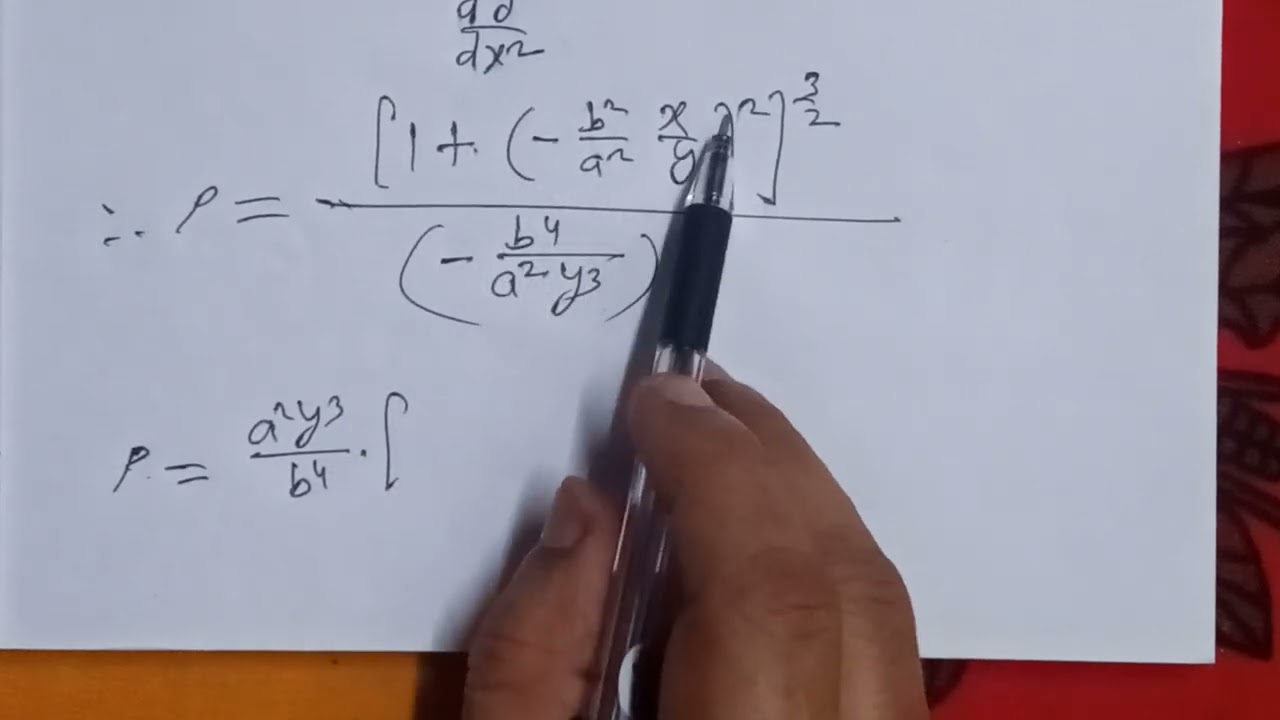 dx²
[1 + (- b²/a² x/y)²]^3/2
∴ ρ = ―――
(- b⁴/a²y³)
ρ = a²y³/b⁴ · [